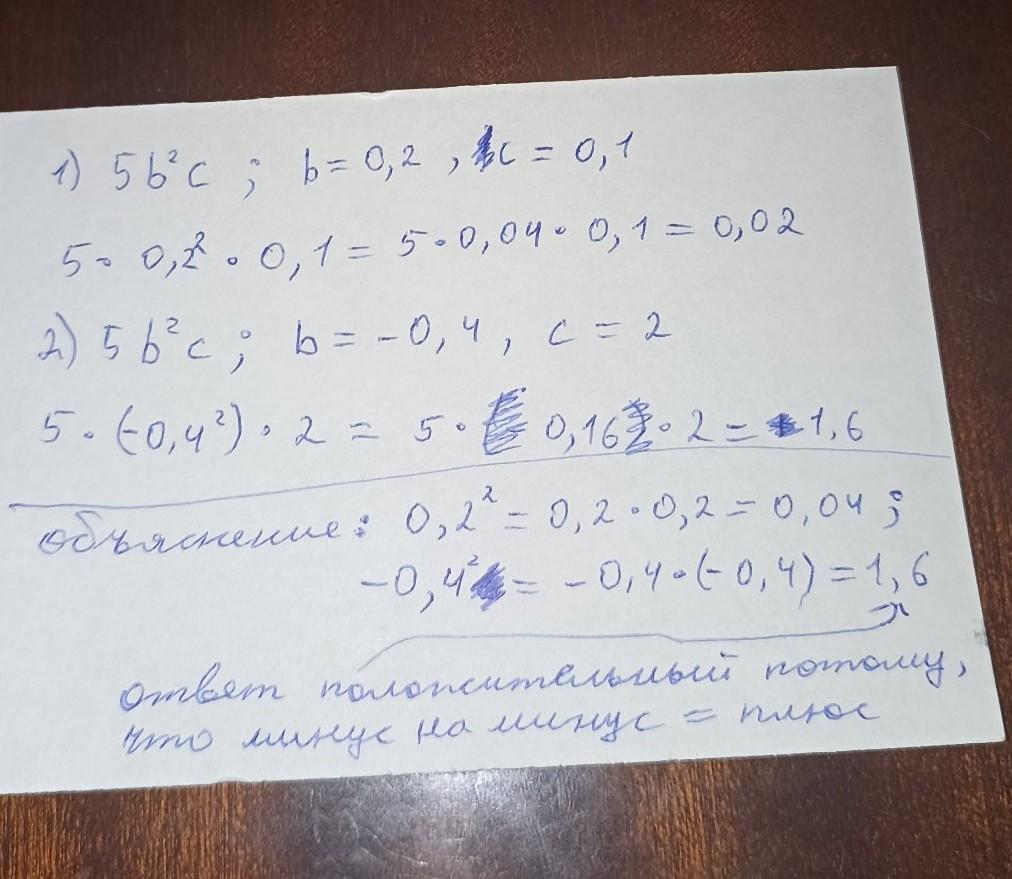 1) 5b²c ; b = 0,2 , c = 0,1
5 · 0,2² · 0,1 = 5 · 0,04 · 0,1 = 0,02
2) 5b²c ; b = -0,4 , c = 2
5 · (-0,4²) · 2 = 5 · 0,16 · 2 = 1,6
объяснение : 0,2² = 0,2 · 0,2 = 0,04 ;
-0,4² = -0,4 · (-0,4) = 1,6
ответ положительный потому,
что минус на минус = плюс